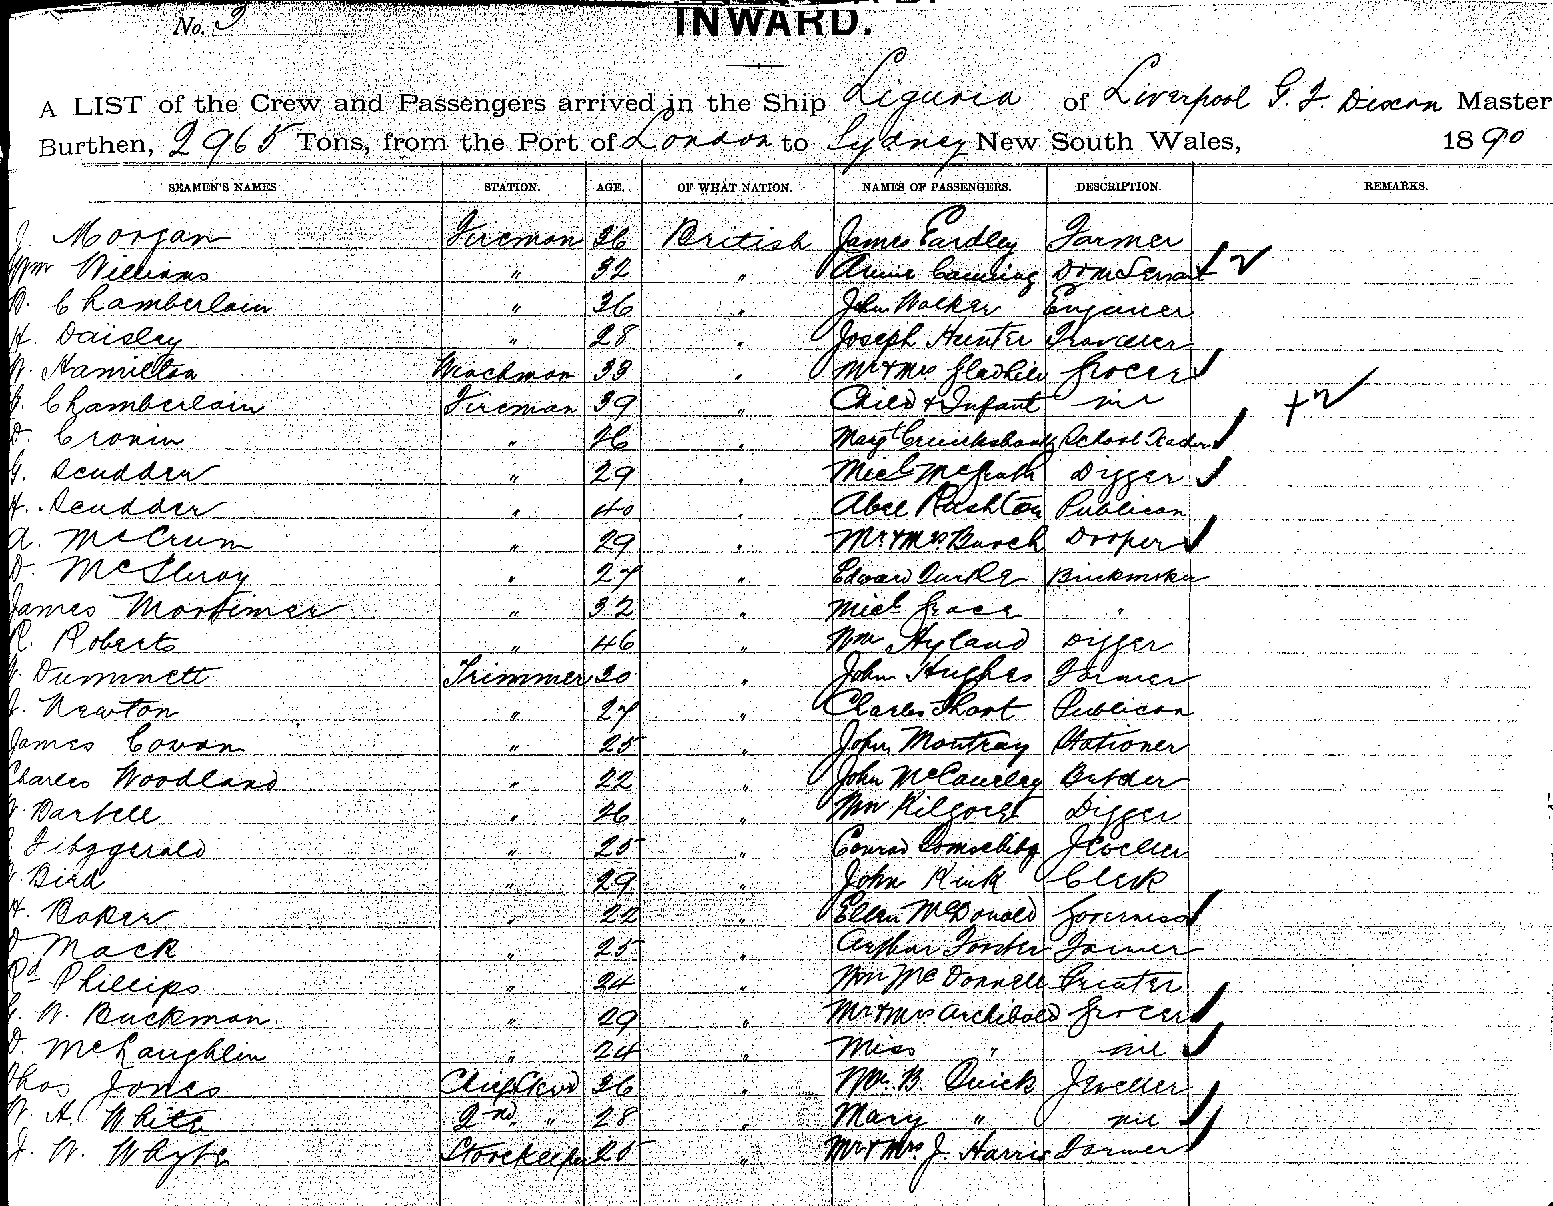 No. 3
INWARD.
A LIST of the Crew and Passengers arrived in the Ship Liguria of Liverpool G. F. Dixon Master
Burthen, 2965 Tons, from the Port of London to Sydney New South Wales, 1890
SEAMEN'S NAMES STATION. AGE. OF WHAT NATION. NAMES OF PASSENGERS. DESCRIPTION. REMARKS.
J Morgan Fireman 36 British James Eardley Farmer
Wm Williams " 32 " Annie Canning Dom Servant
Chamberlain " 36 " John Walker Engineer
H. Daisley " 28 " Joseph Hunter
W. Hamilton 33 " Mr & Mrs Grocer
J. Chamberlain Fireman 39 " Child & Infant nil
D. Cronin " 26 " Margt Cruickshank School Teacher
G. Scudder " 29 " Michl McGrath Digger
H. Scudder " 40 " Abel Rushton Publican
A. McCrum " 29 " Mr & Mrs Burch Draper
D. McIlroy " 27 " Edward Burke Brickmaker
James Mortimer " 32 " Michl Grace "
R. Roberts " 46 " Wm Hyland Digger
Dummett Trimmer 20 " John Hughes Farmer
J. Newton " 27 " Charles Short Publican
James Cowan " 25 " John Stationer
Charles Woodland " 22 " John McCaurley
" 26 " Wm Kilgore Digger
Fitzgerald " 25 " Conrad Jeweller
Bird " 29 " John Kirk Clerk
H. Baker " 22 " Ellen McDonald Governess
Mack " 25 " Arthur Forster
Rd Phillips " 24 " Wm McDonnell
W. Buckman " 29 " Mr & Mrs Archibald Grocer
D. McLaughlin " 24 " Miss " nil
Thos Jones 36 Mr. B. Quick Jeweller
W. H. White 2nd " 28 " Mary " nil
J. W. Whyte Storekeeper 25 " Mr & Mrs J. Harris Farmer